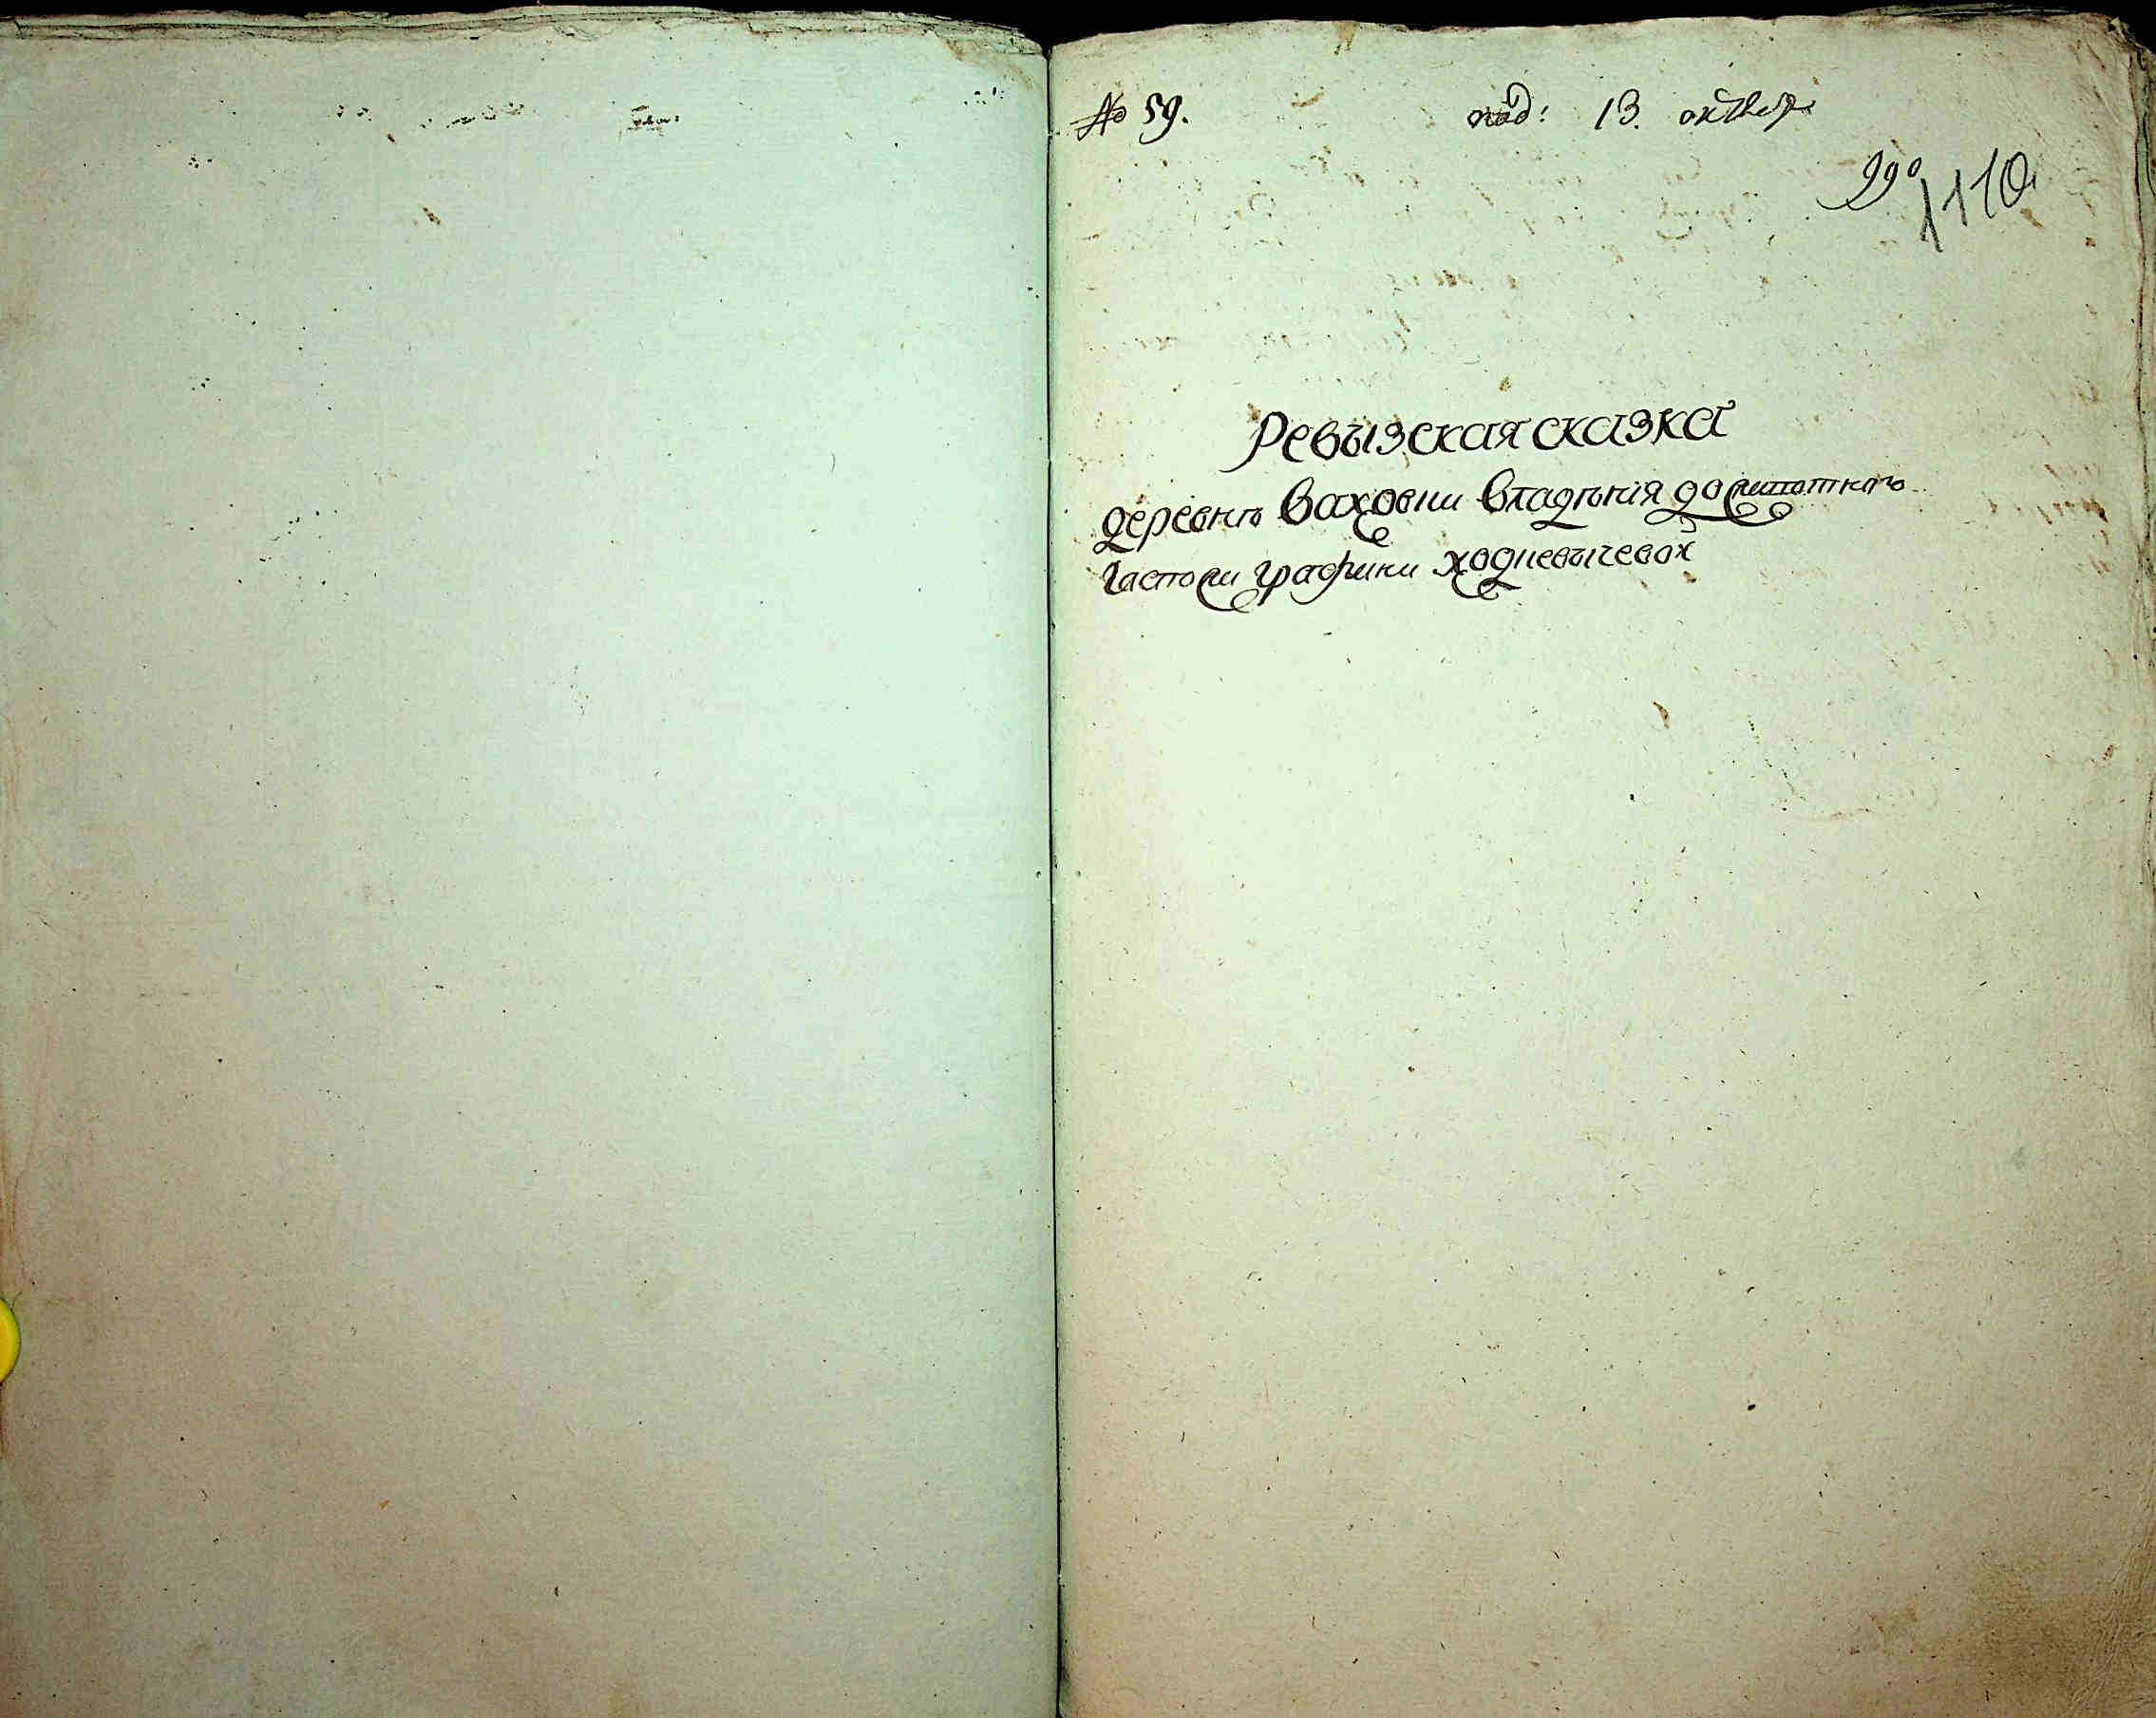 № 59. под: 13. октбр:
990
1110
Ревызская сказка
деревнѣ Ваховни владѣнія доживотнаго
части графини Ходкевычевой